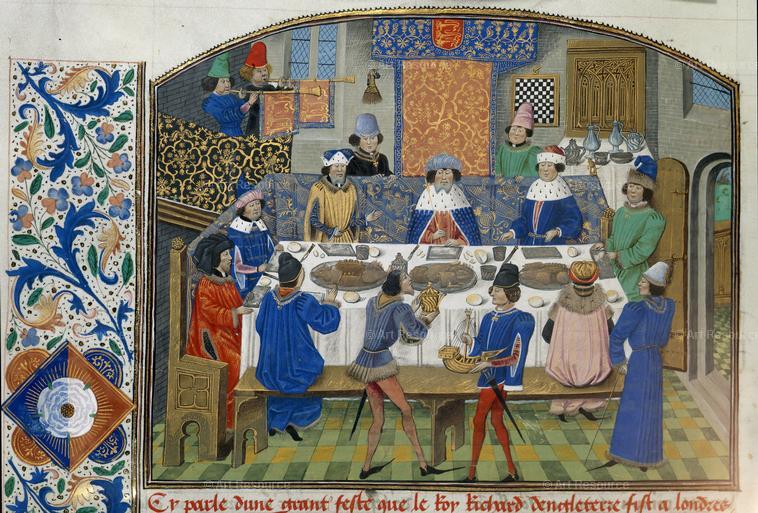 © Art Resource
© Art Resource
© Art Resource
© Art Resource
© Art Resource
Art Resource
Cy parle dune grant feste que le Roy Richard dengleterre fist a londres